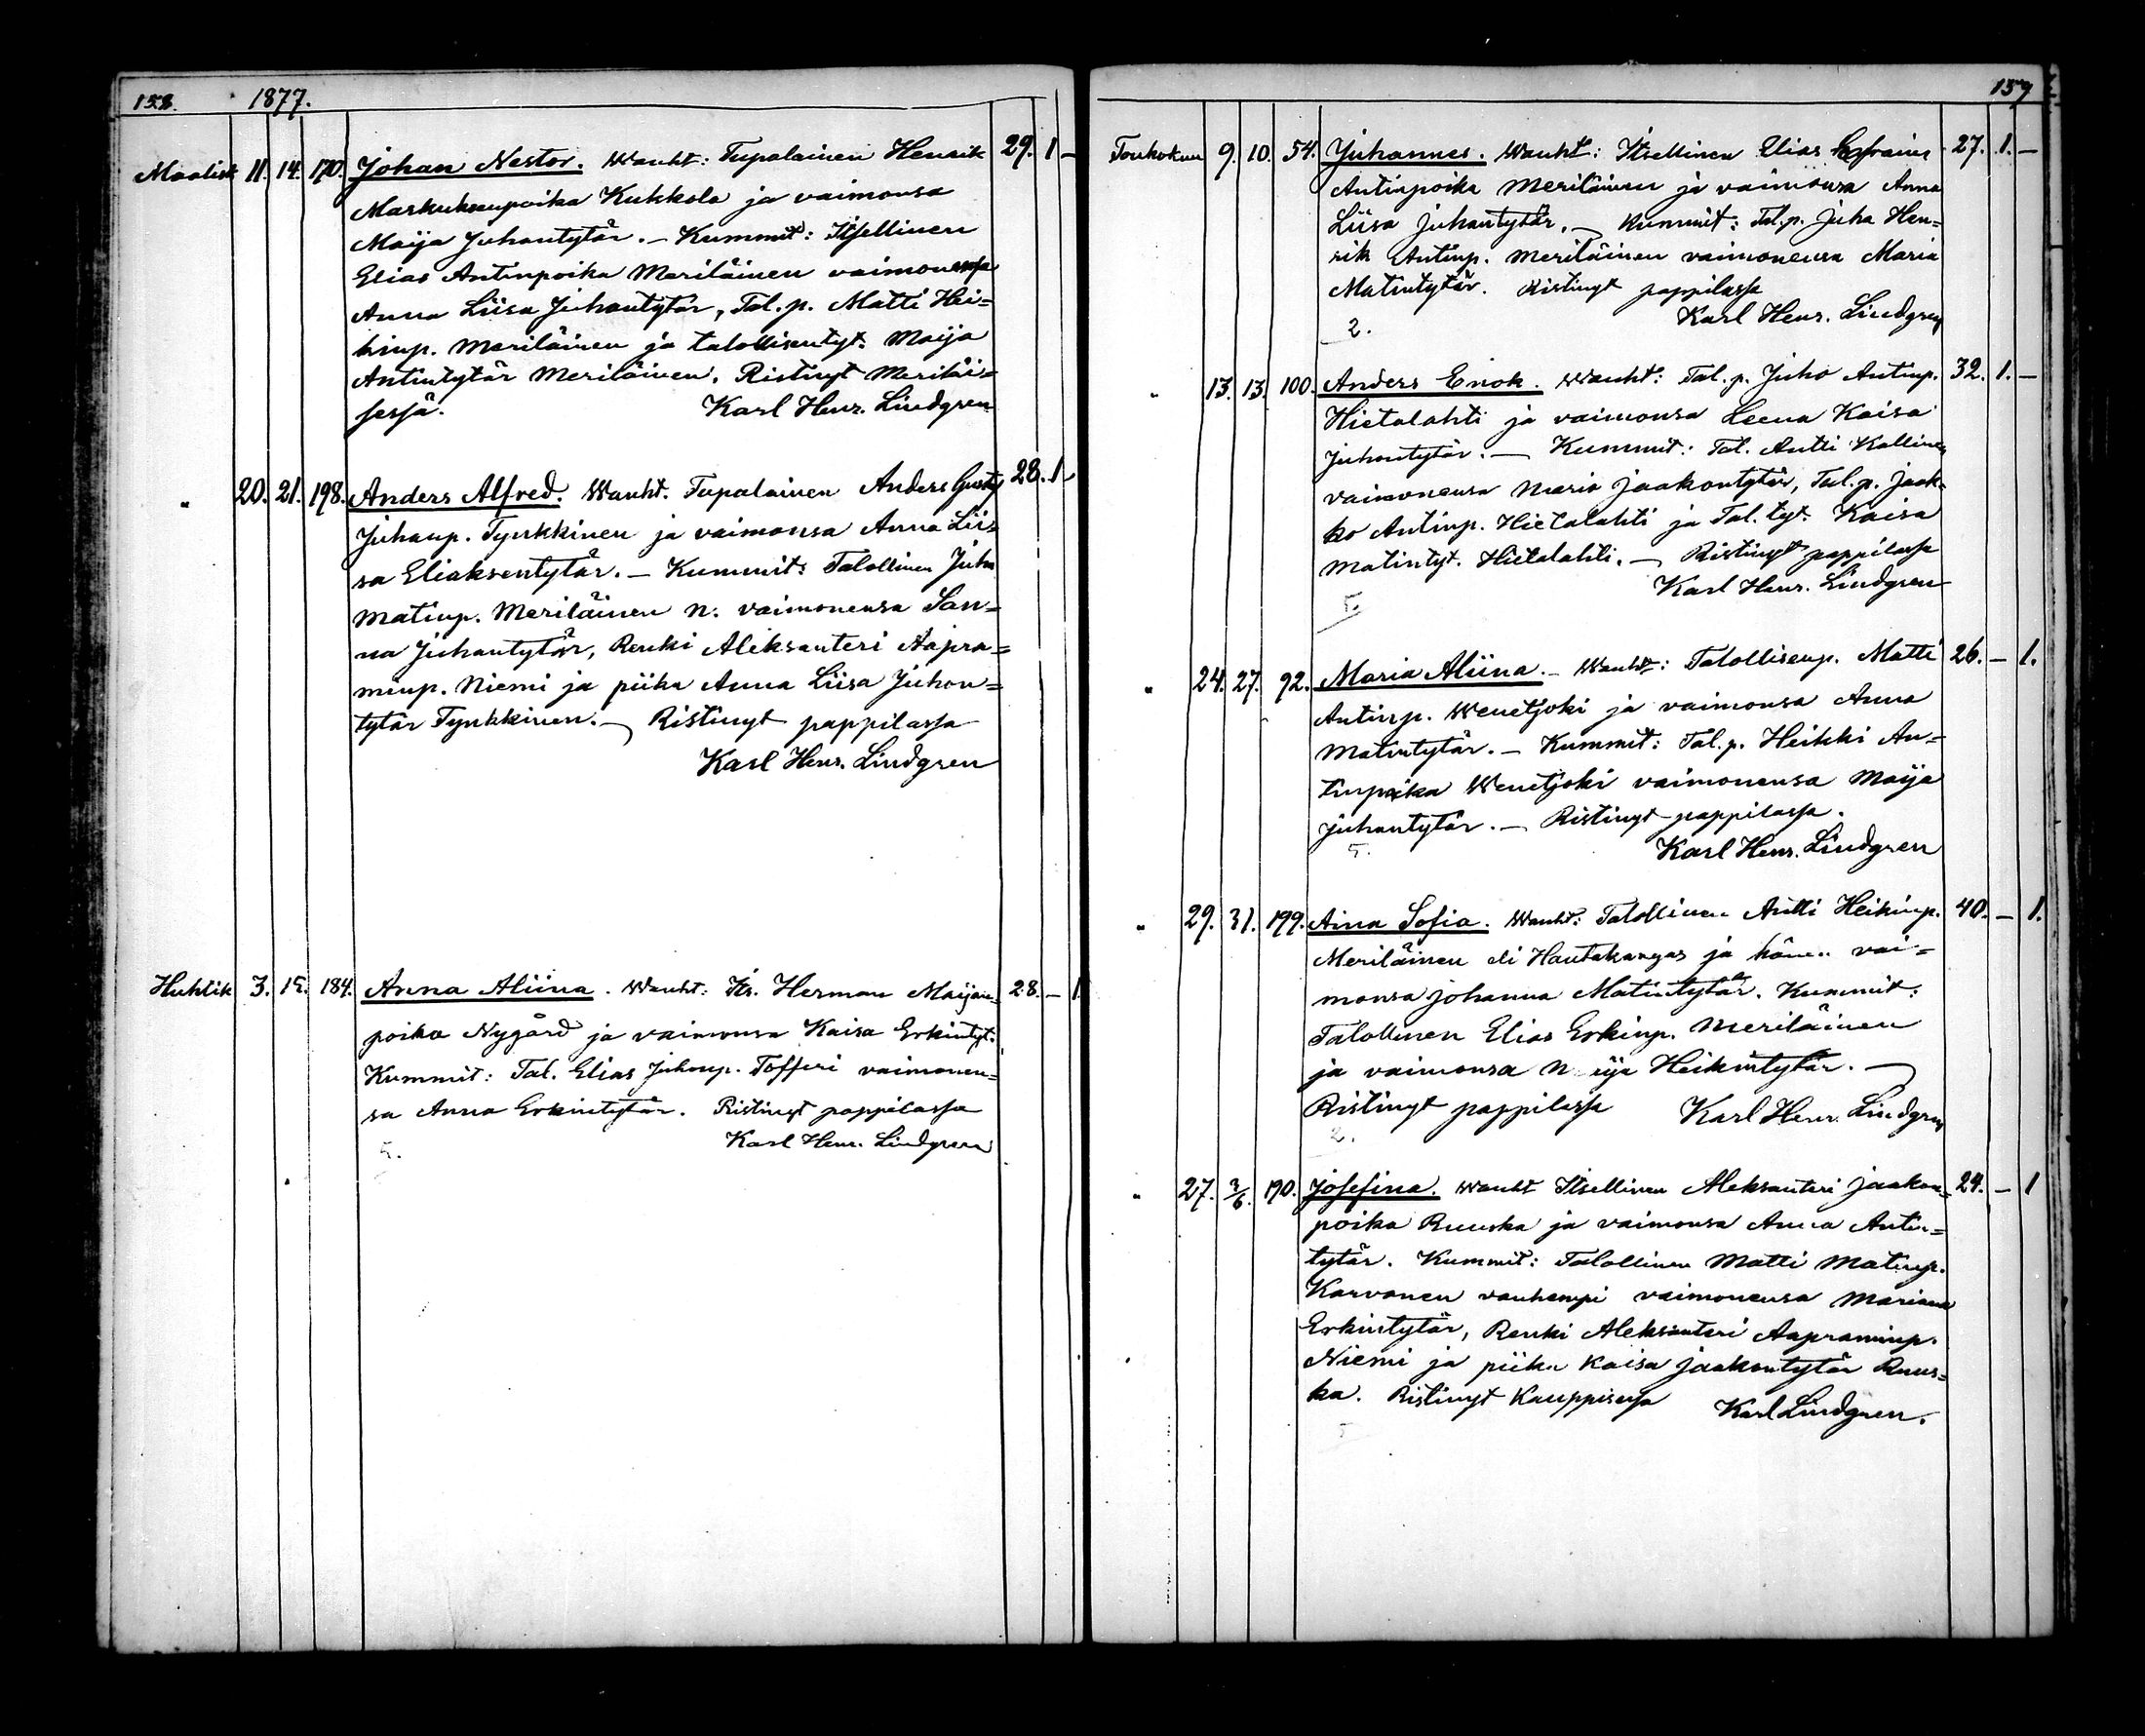 158. 1877.
Maalisk 11. 14. 170. Johan Nestor. Wanht: Tupalainen Henrik 29. 1 –
Markuksenpoika Kukkola ja vaimonsa
Maija Juhantytär. – Kummit: Itsellinen
Elias Antinpoika Meriläinen vaimonensa
Anna Liisa Juhantytär, Tal. p. Matti Hei=
kinp. Meriläinen ja talollisentyt. Maija
Antintytär Meriläinen. Ristinyt Meriläi=
sessä. Karl Henr. Lindgren
" 20. 21. 198. Anders Alfred. Wanht. Tupalainen Anders Gustaf 28. 1
Juhanp. Tynkkinen ja vaimonsa Anna Lii=
sa Eliaksentytär. – Kummit: Talollinen Juha
Matinp. Meriläinen n. vaimonensa San=
na Juhantytär, Renki Aleksanteri Aapra=
minp. Niemi ja piika Anna Liisa Juhan=
tytär Tynkkinen. – Ristinyt pappilassa
Karl Henr. Lindgren
Huhtik 3. 15. 184. Anna Aliina. Wanht: Its. Herman Maijan= 28. – 1.
poika Nygård ja vaimonsa Kaisa Erkintyt.
Kummit: Tal. Elias Juhonp. Tofferi vaimonen=
sa Anna Erkintytär. Ristinyt pappilassa
Karl Henr. Lindgren
5.
159
Toukokuu 9. 10. 54. Juhannes. Wanht: Itsellinen Elias Efraim 27. 1. –
Antinpoika Meriläinen ja vaimonsa Anna
Liisa Juhantytär. – Kummit: Tal. p. Juha Hen=
rik Antinp. Meriläinen vaimonensa Maria
Matintytär. Ristinyt pappilassa
2. Karl Henr. Lindgren
" 13. 13. 100. Anders Enok. Wanht: Tal. p. Juho Antinp. 32. 1. –
Hietalahti ja vaimonsa Leena Kaisa
Juhontytär. – Kummit: Tal. Antti Kallinen
vaimonensa Maria Jaakontytär, Tal. p. Jaak=
ko Antinp. Hietalahti ja Tal. tyt. Kaisa
Matintyt. Hietalahti. – Ristinyt pappilassa
5. Karl Henr. Lindgren
" 24. 27. 92. Maria Aliina. – Wanht: Talollisenp. Matti 26. – 1.
Antinp. Wenetjoki ja vaimonsa Anna
Matintytär. – Kummit: Tal. p. Heikki An=
tinpoika Wenetjoki vaimonensa Maija
Juhantytär. – Ristinyt pappilassa.
5. Karl Henr. Lindgren
" 29. 31. 199. Aina Sofia. Wanht: Talollinen Antti Heikinp. 40. – 1.
Meriläinen eli Hautakangas ja hänen vai=
monsa Johanna Matintytär. Kummit:
Talollinen Elias Erkinp. Meriläinen
ja vaimonsa Maija Heikintytär. –
Ristinyt pappilassa Karl Henr. Lindgren
2.
" 27. 3/6. 190. Josefina. Wanht Itsellinen Aleksanteri Jaakon= 24. – 1
poika Ruuska ja vaimonsa Anna Antin=
tytär. Kummit: Talollinen Matti Matinp.
Karvonen vanhempi vaimonensa Mariana
Erkintytär, Renki Aleksanteri Aapraminp.
Niemi ja piika Kaisa Jaakontytär Ruus=
ka. Ristinyt Kauppisessa Karl Lindgren.